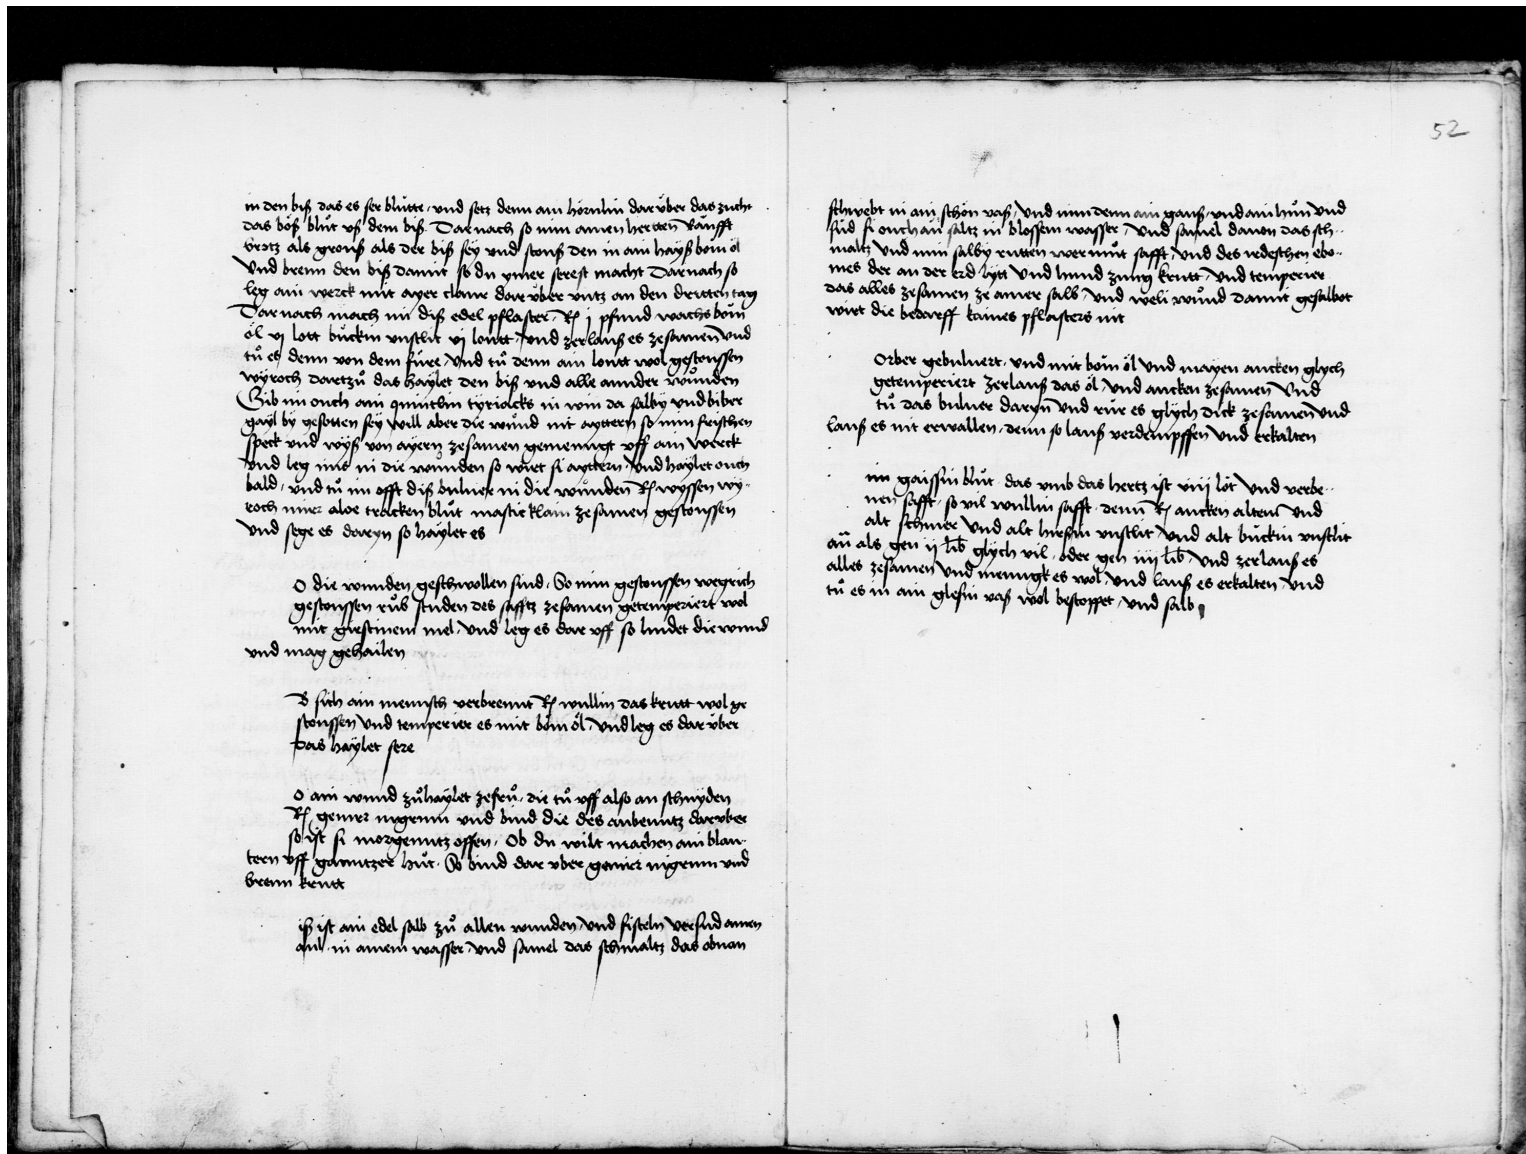 in den biß das es ser blutte / und setz denn ain hörnlin dar über das zucht
das böß blůt vß dem biß. Darnach so nim ainen hertten Raufft
brotz als grouß als der biß sey vnd stouß den in ain hayß bom öl
Vnd brenn den biß damit so du ymer serest macht Darnach so
leg ain werck mit ayer claur dar über vntz an den dritten tag
Darnach mach im diß edel pflaster. Rx j pfund wachs bom
öl vj lott buckin vnslit vj loutt / und zerlauß es zesamen und
tů es denn von dem fure / Und tů denn ain loutt wol gestoussen
wyroch dartzů das haylet den biß vnd alle annder wůnden
Gib im ouch ain quintlin tyriacks in win da salby und biber
gayl by gesotten sey will aber die wund nit ayttern so nim frischen
speck vnd wyß von ayern zesamen gemenngt vff ain werck
vnd leg ims in die wunden so wirt si ayttern / und haylet ouch
bald / vnd tů im offt diß buluer in die wunden Rx wyssen wy-
roch mirr aloe tracken blůt mastic klain zesamen gestoussen
Vnd sege es daryn so haylet es
O die wunden geschwollen sind / So nim gestoussen wegrich
gestoussen rub studen des saffts zesamen getemperiert wol
mit girstinem mel / und leg es dar vff so lindet die wund
vnd mag gehailen
B sich ain mennsch verbrennt Rx wullin das krutt wol ge
stoussen und temperier es mit bom öl / und leg es dar über
das haylet sere
O ain wund zů haylet ze frů / die tů vff also an schnyden
Rx nigrum vnd bind die des aubenntz darüber
so ist si morgenntz offen / Ob du wilt machen ain blau-
tern vff ganntzer hut. So bind dar uber nigrum und
brenn krutt
iß ist ain edel salb zů allen wunden / und fisteln versud ainen
aul in ainem wasser / und samel das schmaltz das obnan
52
schwebt in ain schön vaß / und nim denn ain ganß / und ain hůn und
sud si ouch an saltz in blossem wasser Und samel dauon das sch-
maltz Und nim salby rutten wermůt safft / und des irdeschen ebo-
mes der an der erd lytt Und hund zung krutt / Und temperier
das alles zesamen ze ainer salb / Und weli wůnd damit gesalbet
wirt die bedarff kaines pflasters nit
Orber gebuluert / und mit bom öl Und mayen ancken glych
getemperiert zerlauß das öl / Und ancken zesamen Und
tů das buluer daryn Und rur es glych dick zesamen und
lauß es nit erwallen / denn so lauß verdempffen Und erkalten
im gaissin blůt das vmb das hertz ist viij löt Und verbe-
nen safft / so vil wullin safft denn Rx ancken alten Und
alt schmer Und alt hirsin vnslit / Und alt buckin vnslit
als gen ij lib glych vil / oder gen iiij lib Und zerlauß es
alles zesamen Und menngk es wol / Und lauß es erkalten / Und
tů es in ain glesin vaß wol bestoppet / und salb